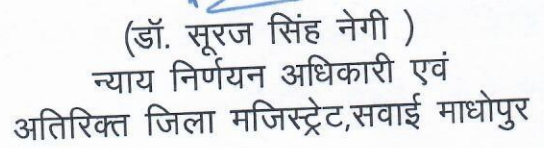 (डॉ. सूरज सिंह नेगी )
न्याय निर्णयन अधिकारी एवं
अतिरिक्त जिला मजिस्ट्रेट,सवाई माधोपुर